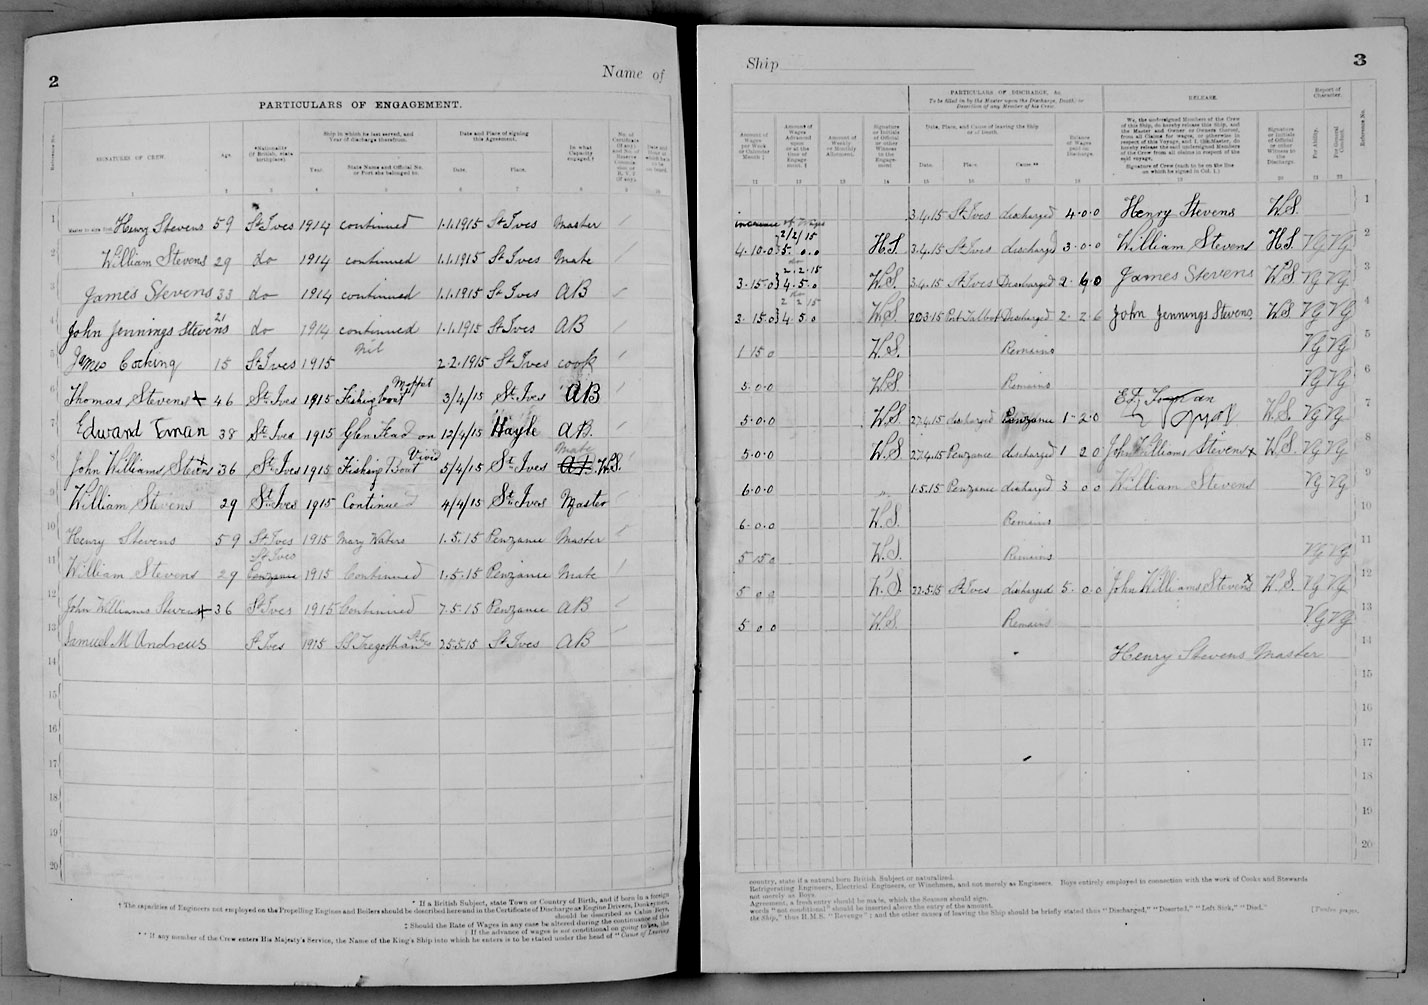 2
Name of
PARTICULARS OF ENGAGEMENT.
Reference No.
SIGNATURES OF CREW.
Age.
*Nationality (If British, state birthplace).
Ship in which he last served, and Year of discharge therefrom.
Year.
State Name and Official No. or Port she belonged to.
Date and Place of signing this Agreement.
Date.
Place.
In what Capacity engaged.†
1 Master to sign first Henry Stevens 59 St Ives 1914 continued 1.1.1915 St Ives Master
2 William Stevens 29 do 1914 continued 1.1.1915 St Ives Mate
3 James Stevens 33 do 1914 continued 1.1.1915 St Ives AB
4 John Jennings Stevens 21 do 1914 continued 1.1.1915 St Ives AB
5 James Cocking 15 St Ives 1915 Nil 2.2.1915 St Ives cook
6 Thomas Stevens x 46 St Ives 1915 Fishing boat Moffat 3/4/15 St. Ives AB
7 Edward 38 St. Ives 1915 Glen 12/4/15 Hayle AB.
8 John Williams Stevens x 36 St. Ives 1915 Fishing Boat Vivid 5/4/15 St. Ives Mate AB. W.S.
9 William Stevens 29 St. Ives 1915 Continued 4/4/15 St. Ives Master
10 Henry Stevens 59 St Ives 1915 Mary Waters 1.5.15 Penzance Master
11 William Stevens 29 St Ives Penzance 1915 Continued 1.5.15 Penzance Mate
12 John Williams Stevens x 36 St Ives 1915 Continued 7.5.15 Penzance AB
13 Samuel M Andrews St Ives 1915 SS 25.5.15 St Ives AB
14
15
16
17
18
19
20
* If a British Subject, state Town or Country of Birth, and if born in a foreign
† The capacities of Engineers not employed on the Propelling Engines and Boilers should be described here and in the Certificate of Discharge as Engine Drivers, Donkeymen,
should be described as Cabin Boys,
‡ Should the Rate of Wages in any case be altered during the continuance of this
| If the advance of wages is not conditional on going to sea, the
** If any member of the Crew enters His Majesty's Service, the Name of the King's Ship into which he enters is to be stated under the head of "Cause of Leaving
Ship
3
PARTICULARS OF DISCHARGE, &c.
To be filled in by the Master upon the Discharge, Death, or Desertion of any Member of his Crew.
RELEASE.
Report of Character.
Amount of Wages per Week or Calendar Month ‡
Amount of Wages Advanced upon or at the time of Engagement. ‖
Amount of Weekly or Monthly Allotment.
Signature or Initials of Official or other Witness to the Engagement
Date, Place, and Cause of leaving the Ship or of Death.
Date.
Place
Cause **
Balance of Wages paid on Discharge.
We, the undersigned Members of the Crew of this Ship, do hereby release this Ship, and the Master and Owner or Owners thereof, from all Claims for wages, or otherwise in respect of this Voyage, and I, the Master, do hereby release the said undersigned Members of the Crew from all claims in respect of the said voyage.
Signature of Crew (each to be on the line on which he signed in Col. 1.)
Signature or Initials of Official or other Witness to the Discharge.
For Ability.
For General Conduct.
Reference No.
3.4.15 St Ives discharged 4.0.0 Henry Stevens W.S. 1
increase of Wages
2/2/15
4.10.0 5.0.0 H.S. 3.4.15 St Ives discharged 3.0.0 William Stevens H.S. Vg Vg 2
do 2.2.15
3.15.0 4.5.0 W.S. 3.4.15 St Ives Discharged James Stevens W.S Vg Vg 3
do 2 2 15
3.15.0 4 5 0 W.S Port Talbot Discharged 2.2.6 John Jennings Stevens W.S Vg Vg 4
1 15 0 W.S. Remains Vg Vg 5
5.0.0 W.S Remains Vg Vg 6
5.0.0 W.S 27.4.15 discharged Penzance 1-2.0 W.S. Vg Vg 7
5.0.0 W.S 27.4.15 Penzance discharged 1 2 0 John Williams Stevens x W.S. Vg Vg 8
6.0.0 " 1.5.15 Penzance discharged 3 0 0 William Stevens Vg Vg 9
6.0.0 W.S. Remains 10
5 15 0 W.S. Remains Vg Vg 11
5 0 0 W.S. 22.5.15 St Ives discharged 5.0.0 John Williams Stevens x W.S. Vg Vg 12
5 0 0 W.S. Remains Vg Vg 13
Henry Stevens Master 14
15
16
17
18
19
20
country, state if a natural born British Subject or naturalized.
Refrigerating Engineers, Electrical Engineers, or Winchmen, and not merely as Engineers. Boys entirely employed in connection with the work of Cooks and Stewards
not merely as Boys.
Agreement, a fresh entry should be made, which the Seaman should sign.
words "not conditional" should be inserted above the entry of the amount.
the Ship," thus H.M.S. "Revenge"; and the other causes of leaving the Ship should be briefly stated thus "Discharged," "Deserted," "Left Sick," "Died."
[Twelve pages.